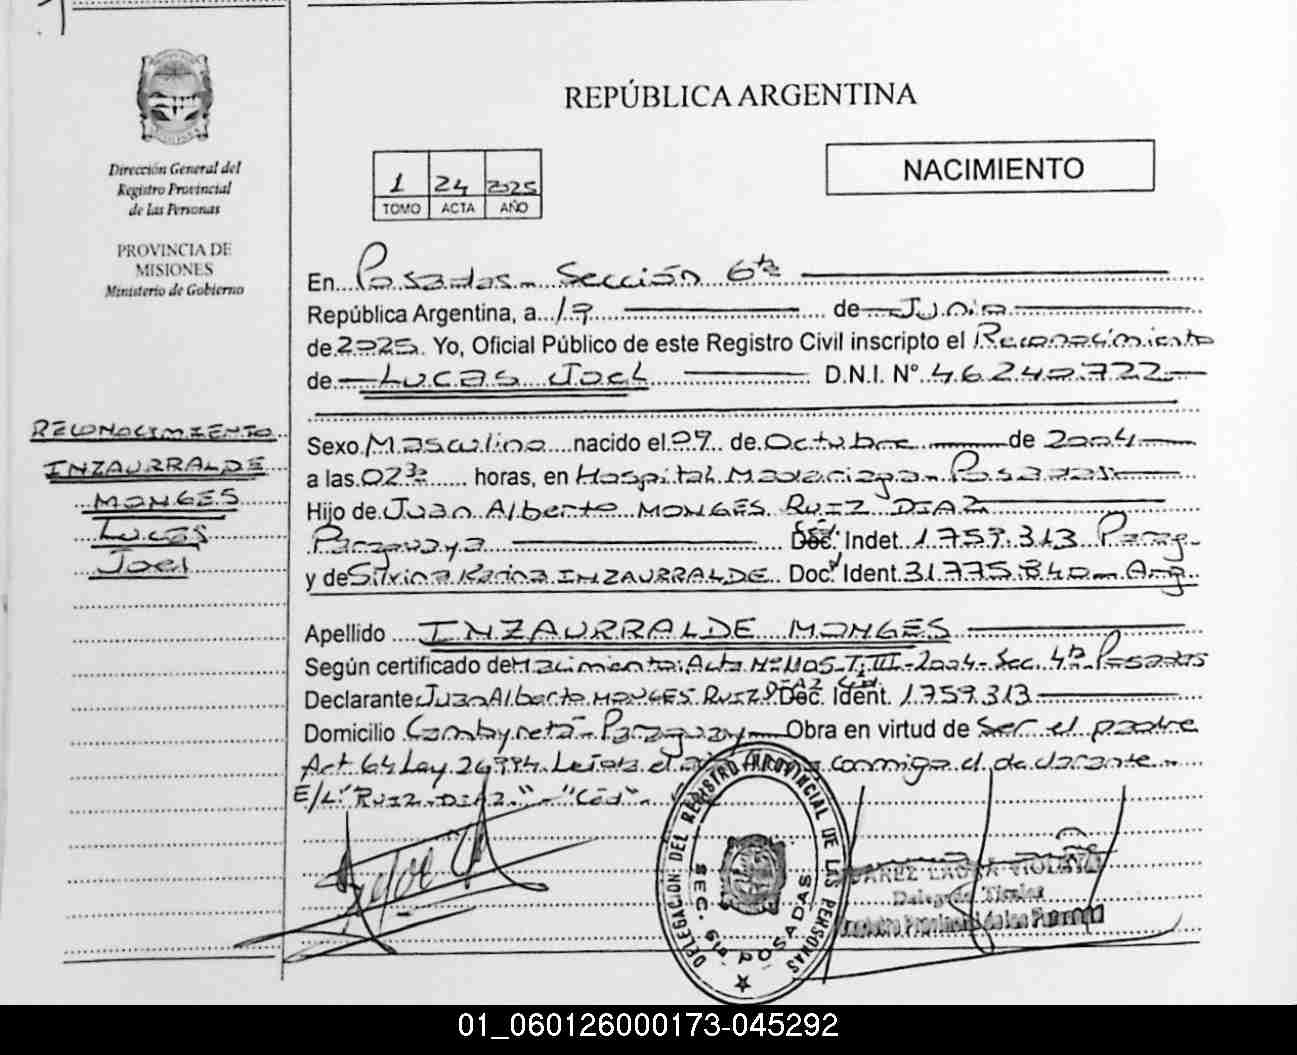 REPÚBLICA ARGENTINA
Dirección General del
Registro Provincial
de las Personas
PROVINCIA DE
MISIONES
Ministerio de Gobierno
1 24 2025
TOMO ACTA AÑO
NACIMIENTO
En Posadas - Sección 6ta
República Argentina, a 19 de Junio
de 2025. Yo, Oficial Público de este Registro Civil inscripto el Reconocimiento
de Lucas Joel D.N.I. Nº 46240.722
RECONOCIMIENTO
INZAURRALDE
MONGES
Lucas
Joel
Sexo Masculino nacido el 09 de Octubre de 2004
a las 02 30 horas, en Hospital Madariaga - Posadas
Hijo de Juan Alberto MONGES RUIZ DIAZ
Paraguaya Doc. Indet. 1.759.313 Parag.
y de Silvina Karina INZAURRALDE Doc. Ident. 31.775.840 - Arg.
Apellido INZAURRALDE MONGES
Según certificado de Nacimiento: Acta Nº 1105 - T: III - 2004 - Sec. 4ta Posadas
Declarante Juan Alberto MONGES RUIZ DIAZ Céd. Doc. Ident. 1.759.313
Domicilio Cambyretá - Paraguay Obra en virtud de Ser el padre
Art 64 Ley 26994. Leída el conmigo el declarante -
E/L: "RUIZ DIAZ" - "Céd" -
DELEGACION DEL REGISTRO PROVINCIAL DE LAS PERSONAS
SEC. 6ta POSADAS
LAURA VIOLETA
Delegada Titular
Registro Provincial de las Personas
01_060126000173-045292